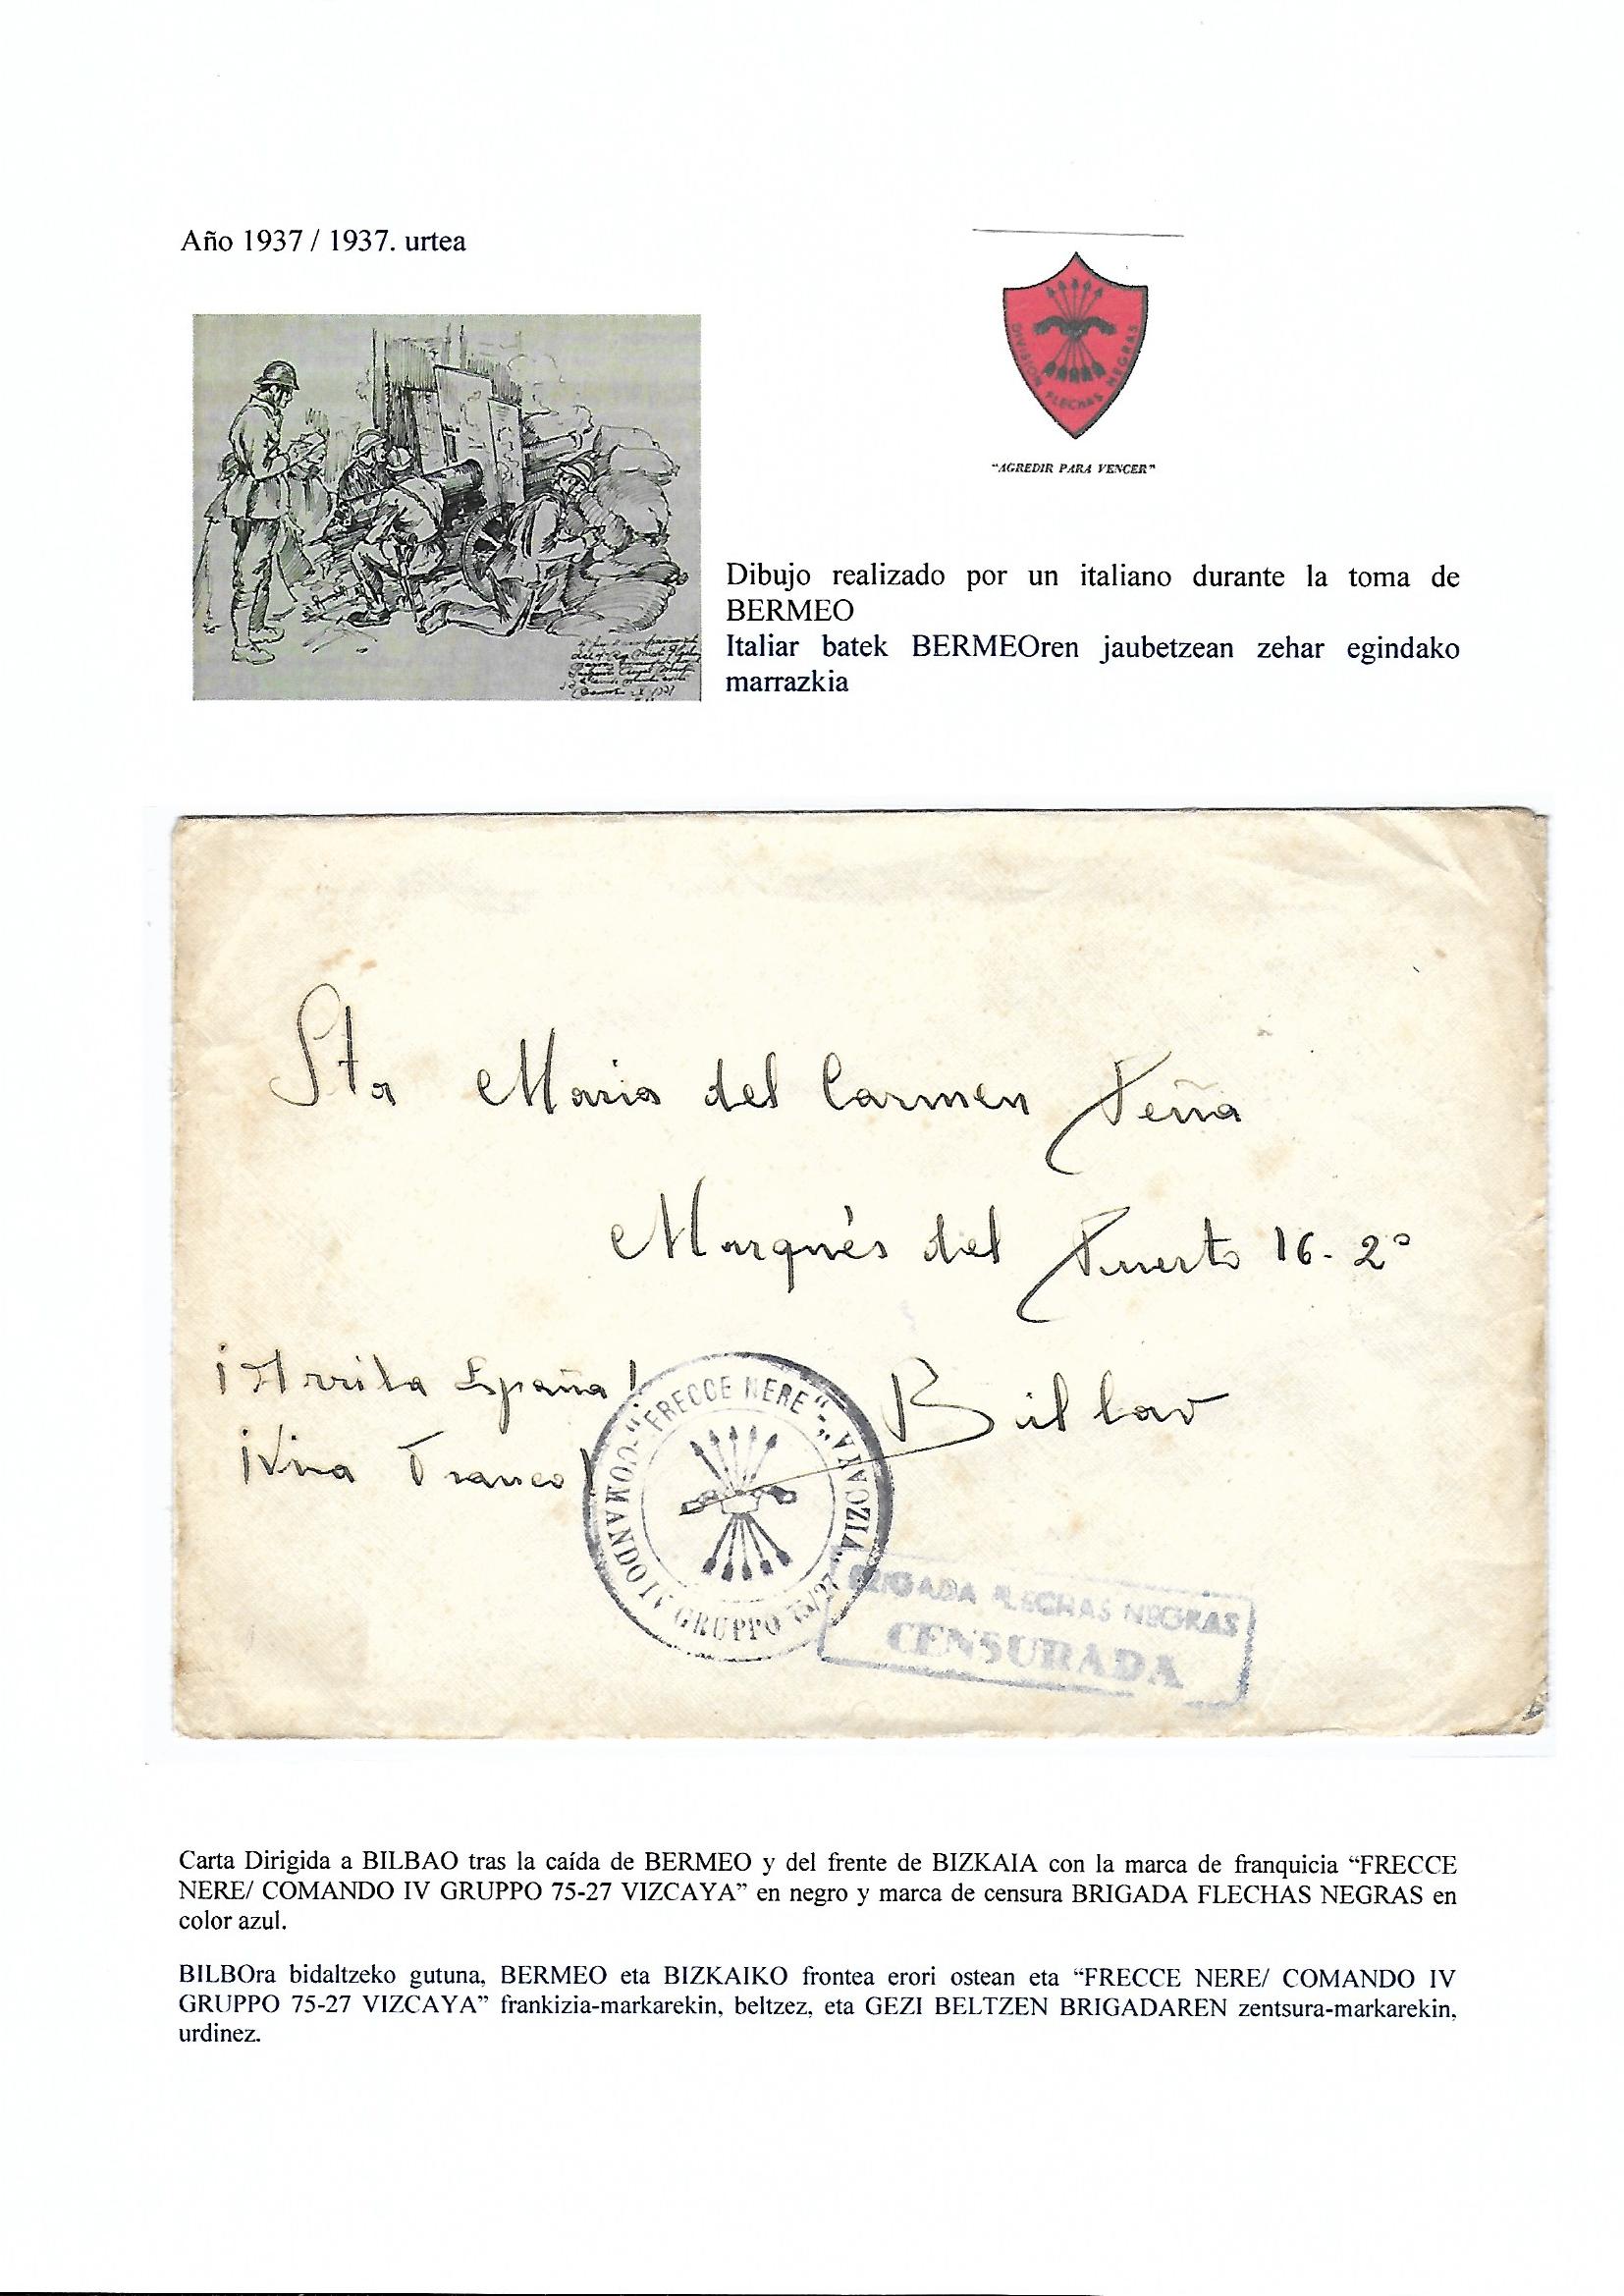 Año 1937 / 1937. urtea
DIVISION FLECHAS NEGRAS
"AGREDIR PARA VENCER"
Dibujo realizado por un italiano durante la toma de
BERMEO
Italiar batek BERMEOren jaubetzean zehar egindako
marrazkia
Sta Maria del Carmen Peña
Marqués del Puerto 16-2º
¡Arriba España!
¡Viva Franco!
Bilbao
"FRECCE NERE" "VIZCAYA"
COMANDO IV GRUPPO 75/27
BRIGADA FLECHAS NEGRAS
CENSURADA
Carta Dirigida a BILBAO tras la caída de BERMEO y del frente de BIZKAIA con la marca de franquicia “FRECCE
NERE/ COMANDO IV GRUPPO 75-27 VIZCAYA” en negro y marca de censura BRIGADA FLECHAS NEGRAS en
color azul.
BILBOra bidaltzeko gutuna, BERMEO eta BIZKAIKO frontea erori ostean eta “FRECCE NERE/ COMANDO IV
GRUPPO 75-27 VIZCAYA” frankizia-markarekin, beltzez, eta GEZI BELTZEN BRIGADAREN zentsura-markarekin,
urdinez.